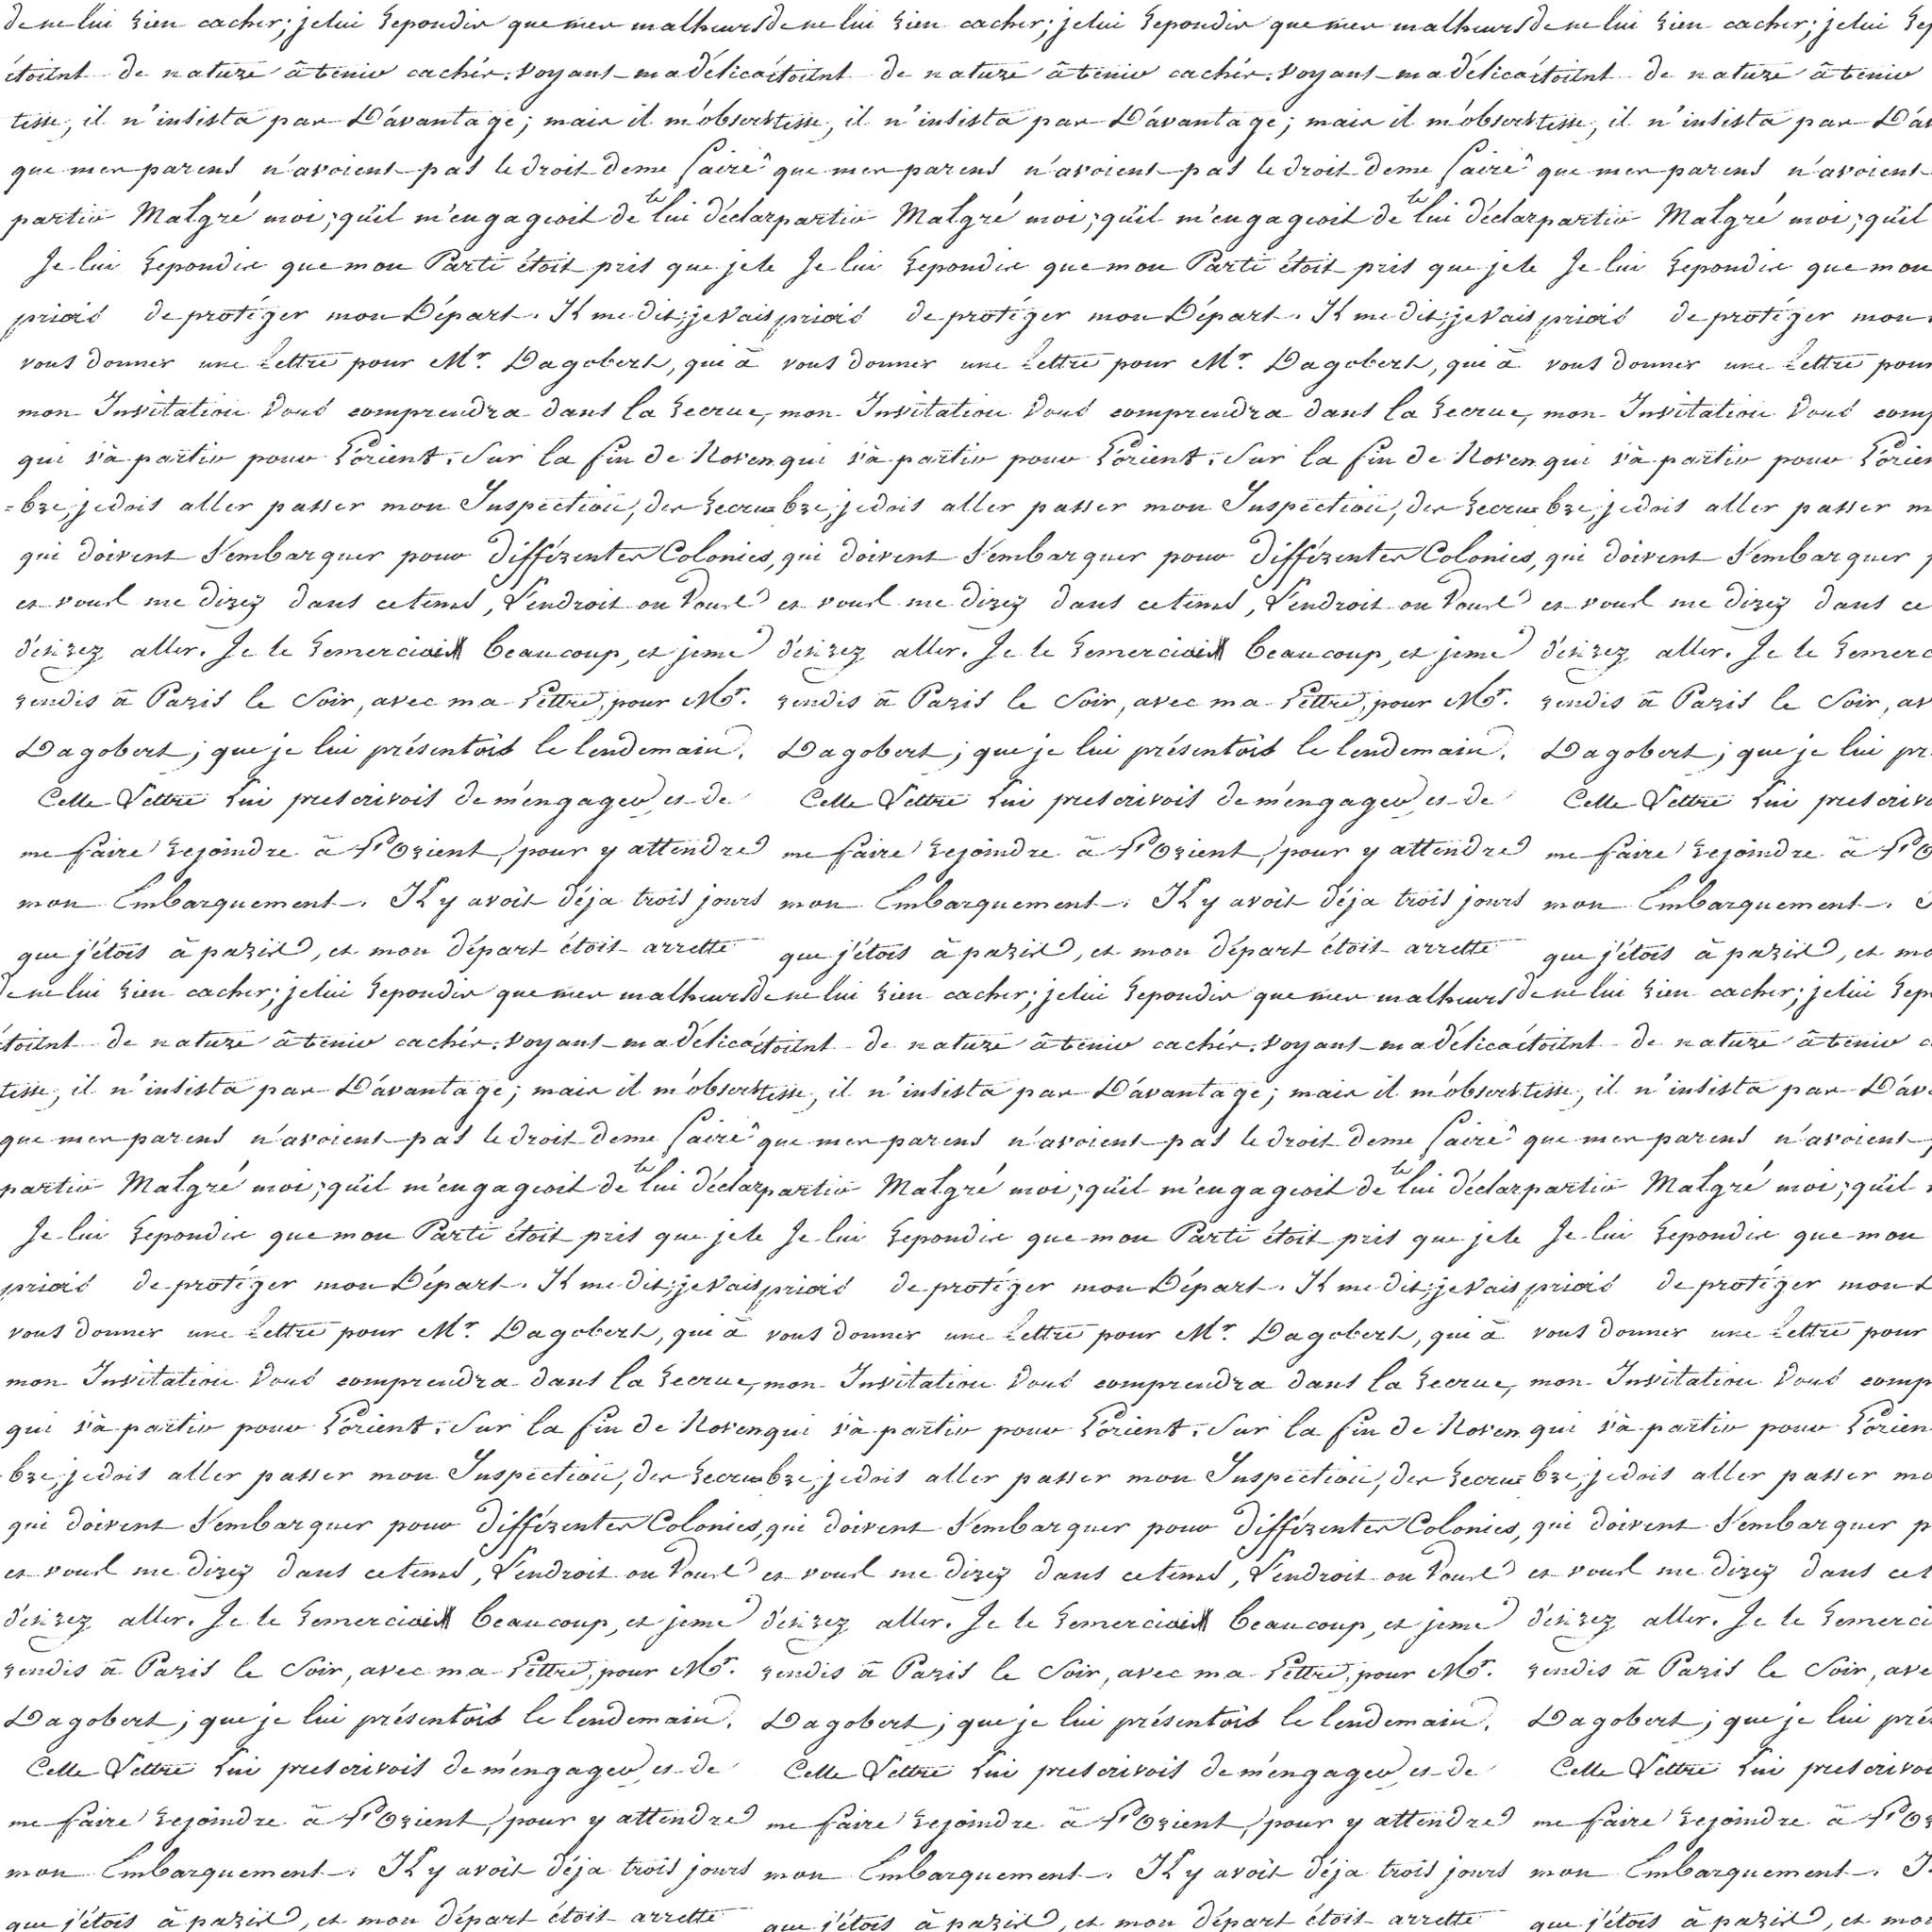 de ne lui rien cacher; je lui repondis que mes malheurs de ne lui rien cacher; je lui repondis que mes malheurs de ne lui rien cacher; je lui rep
étoient de nature à tenir cachér. voyant ma délica étoient de nature à tenir cachér. voyant ma délica étoient de nature à tenir
tesse, il n'insista pas D'avantage; mais il m'observ tesse, il n'insista pas D'avantage; mais il m'observ tesse, il n'insista pas D'av
que mes parens n'avoient pas le droit de me faire que mes parens n'avoient pas le droit de me faire que mes parens n'avoient
partir Malgré moi; qu'il m'engageoit de le lui déclar partir Malgré moi; qu'il m'engageoit de le lui déclar partir Malgré moi; qu'il
Je lui repondis que mon Parti étoit pris que je le Je lui repondis que mon Parti étoit pris que je le Je lui repondis que mon
priois de protéger mon Départ. Il me dit; je vais priois de protéger mon Départ. Il me dit; je vais priois de protéger mon
vous donner une Lettre pour Mr. Dagobert, qui à vous donner une Lettre pour Mr. Dagobert, qui à vous donner une Lettre pour
mon Invitation vous comprendra dans la recrue, mon Invitation vous comprendra dans la recrue, mon Invitation vous comp
qui và partir pour L'orient. Sur la fin de Noven qui và partir pour L'orient. Sur la fin de Noven qui và partir pour L'orien
=bre, je dois aller passer mon Inspection, des recrues bre, je dois aller passer mon Inspection, des recrues bre, je dois aller passer m
qui doivent s'embarquer pour différentes Colonies, qui doivent s'embarquer pour différentes Colonies, qui doivent s'embarquer
et vous me direz dans ce tems, l'endroit ou vous et vous me direz dans ce tems, l'endroit ou vous et vous me direz dans ce
désirez aller. Je le remerciais beaucoup, et je me désirez aller. Je le remerciais beaucoup, et je me désirez aller. Je le remerc
rendis à Paris le Soir, avec ma Lettre, pour Mr. rendis à Paris le Soir, avec ma Lettre, pour Mr. rendis à Paris le Soir, av
Dagobert; que je lui présentois le lendemain. Dagobert; que je lui présentois le lendemain. Dagobert; que je lui pr
Cette Lettre lui prescrivoit de m'engager et de Cette Lettre lui prescrivoit de m'engager et de Cette Lettre lui prescriv
me faire rejoindre à L'Orient, pour y attendre me faire rejoindre à L'Orient, pour y attendre me faire rejoindre à L'O
mon Embarquement. Il y avoit déja trois jours mon Embarquement. Il y avoit déja trois jours mon Embarquement.
que j'étois à paris, et mon départ étoit arretté que j'étois à paris, et mon départ étoit arretté que j'étois à paris, et mo
de ne lui rien cacher; je lui repondis que mes malheurs de ne lui rien cacher; je lui repondis que mes malheurs de ne lui rien cacher; je lui rep
étoient de nature à tenir cachér. voyant ma délica étoient de nature à tenir cachér. voyant ma délica étoient de nature à tenir c
tesse, il n'insista pas D'avantage; mais il m'observ tesse, il n'insista pas D'avantage; mais il m'observ tesse, il n'insista pas D'av
que mes parens n'avoient pas le droit de me faire que mes parens n'avoient pas le droit de me faire que mes parens n'avoient
partir Malgré moi; qu'il m'engageoit de le lui déclar partir Malgré moi; qu'il m'engageoit de le lui déclar partir Malgré moi; qu'il
Je lui repondis que mon Parti étoit pris que je le Je lui repondis que mon Parti étoit pris que je le Je lui repondis que mon
priois de protéger mon Départ. Il me dit; je vais priois de protéger mon Départ. Il me dit; je vais priois de protéger mon D
vous donner une Lettre pour Mr. Dagobert, qui à vous donner une Lettre pour Mr. Dagobert, qui à vous donner une Lettre pour
mon Invitation vous comprendra dans la recrue, mon Invitation vous comprendra dans la recrue, mon Invitation vous comp
qui và partir pour L'orient. Sur la fin de Noven qui và partir pour L'orient. Sur la fin de Noven qui và partir pour L'orien
bre, je dois aller passer mon Inspection, des recrues bre, je dois aller passer mon Inspection, des recrues bre, je dois aller passer mo
qui doivent s'embarquer pour différentes Colonies, qui doivent s'embarquer pour différentes Colonies, qui doivent s'embarquer p
et vous me direz dans ce tems, l'endroit ou vous et vous me direz dans ce tems, l'endroit ou vous et vous me direz dans ce t
désirez aller. Je le remerciais beaucoup, et je me désirez aller. Je le remerciais beaucoup, et je me désirez aller. Je le remerci
rendis à Paris le Soir, avec ma Lettre, pour Mr. rendis à Paris le Soir, avec ma Lettre, pour Mr. rendis à Paris le Soir, ave
Dagobert; que je lui présentois le lendemain. Dagobert; que je lui présentois le lendemain. Dagobert; que je lui pré
Cette Lettre lui prescrivoit de m'engager et de Cette Lettre lui prescrivoit de m'engager et de Cette Lettre lui prescrivoi
me faire rejoindre à L'Orient, pour y attendre me faire rejoindre à L'Orient, pour y attendre me faire rejoindre à L'Or
mon Embarquement. Il y avoit déja trois jours mon Embarquement. Il y avoit déja trois jours mon Embarquement. I
que j'étois à paris, et mon départ étoit arretté que j'étois à paris, et mon départ étoit arretté que j'étois à paris, et mon